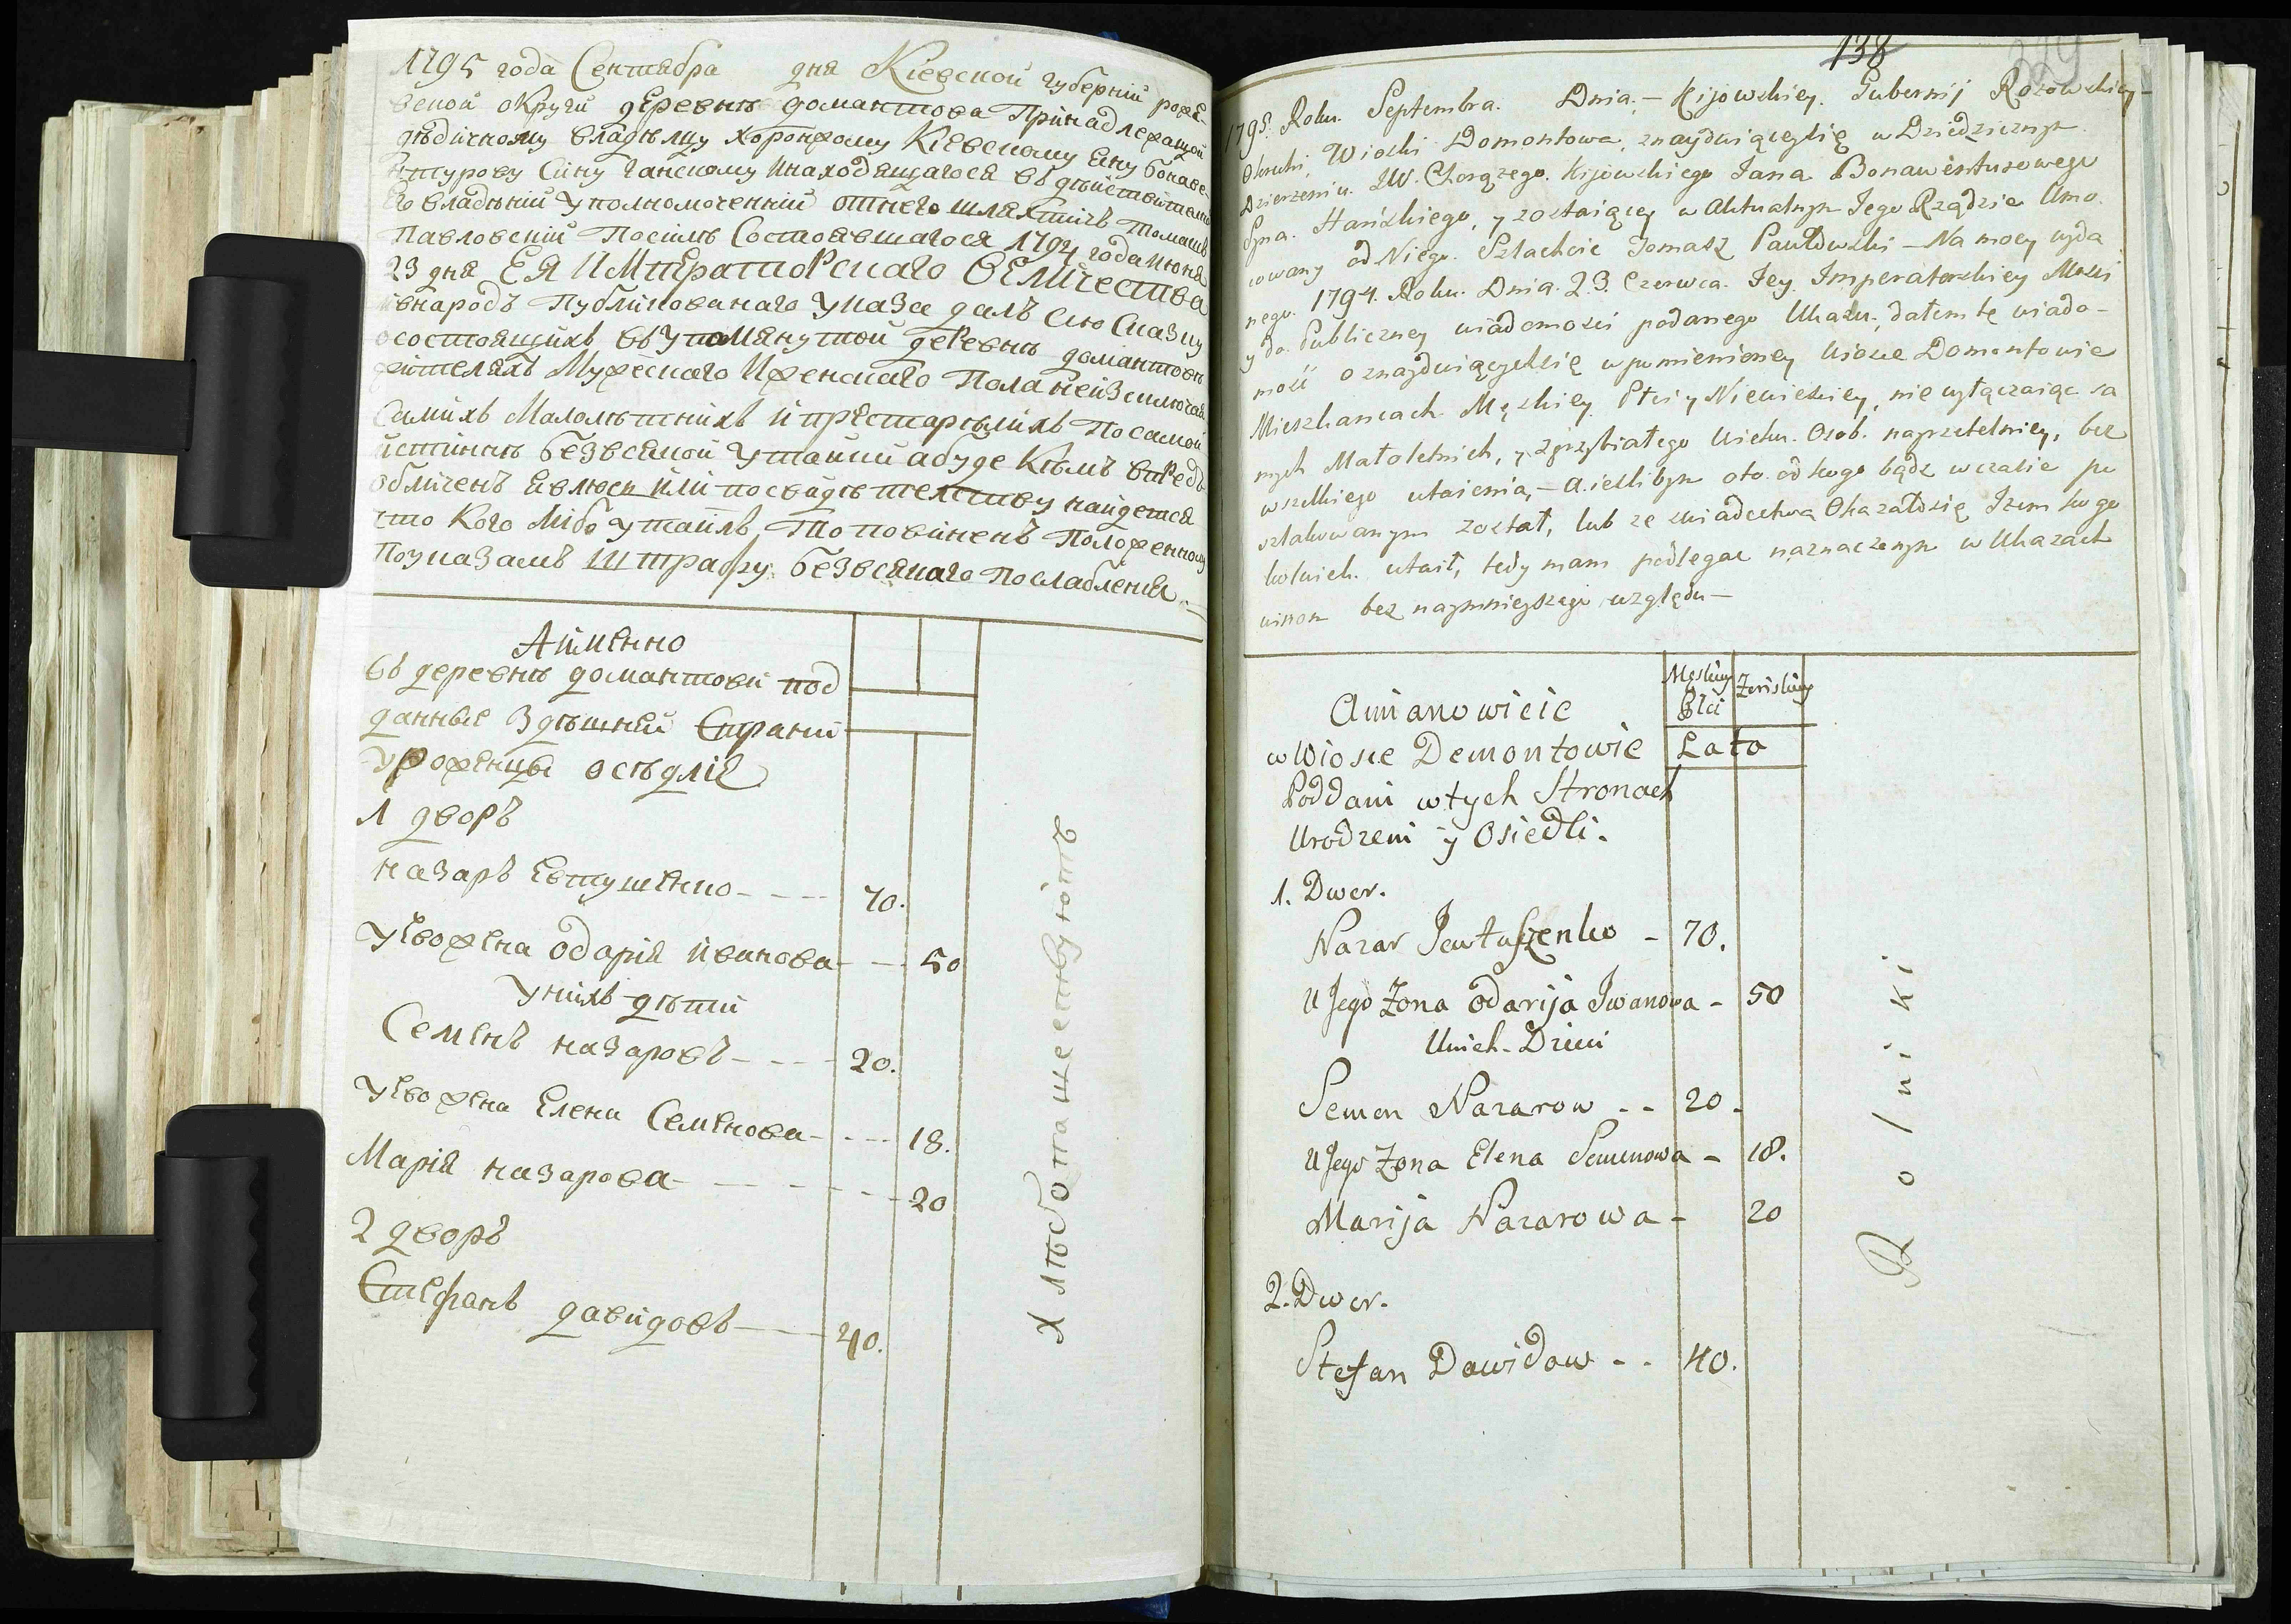 1795 года Сентября дня Кіевской губерніи роже-
вской округи деревнѣ домантова Принадлежащой
дѣдичному владѣлцу хоронжому Кіевскому Яну бонаве-
нтурову Сину ганскому и находящагося въ дѣйствител
Его владѣніи уполномоченній отнего шляхтичъ томашъ
Павловскій Посимъ Состоявшагося 1794 года июня
23 дня ЕЯ ИМПЕратоРскаго ВЕЛИчества
ивнародъ Публикованаго указа далъ сию Сказку
осостоящихъ въ упомянутой деРевнѣ домантовѣ
жителяхъ Мужескаго Иженскаго Пола неизключая
Самихъ Малолѣтнихъ и престарѣлихъ По самой
истиннѣ безвсякой утайки абуде Кѣмъ впредъ
обличенъ явлюся или посвидѣтелству найдется
что Кого либо утаилъ, То повиненъ Положенному
Поуказамъ Штрафу безвсякаго Послабленія
Аименно
въ деревнѣ домантови под
данные Здѣшней Страни
урожЕнцы осѣдліе
1 дворъ
назаръ Евтушенко - - - 70.
унево жена одарія иванова - - 50
унихъ дѣти
СемЕнъ назаровъ - - - 20.
унево жена Елена Семенова - - - 18.
Марія назарова - - - - - 20
2 дворъ
Стефанъ давидовъ - - 40.
хлѣбопашествуютъ
138
229
1795. Roku. Septembra. Dnia. - Kijowskiey. Gubernij Rożowskiey -
Okruhi, Wioski Domontowa, znayduiąceysię w Dziedzicznym
Dzierżeniu. JW. Chorążego. Kijowskiego Jana Bonawenturowego
Syna. Hańskiego, y zostaiącey w Aktualnym Jego Rządzie Umo-
cowany od Niego. Szlachcic Tomasz Pawłowski - Na mocy wyda
nego. 1794. Roku. Dnia. 23. Czerwca. Jey. Imperatorskiey Mości
y do Publiczney wiadomości podanego Ukazu, dałem tę wiado-
mość o znayduiącychsię wpomienioney Wiosce Domontowie
Mieszkańcach Męskiey Płci y Niewieściey, nie wyłączaiąc sa
mych Małoletnich, y zgrzybiałego Wieku. Osob. nayrzetelniey, bez
wszelkiego utaienia, - A ieslibym oto od kogo bądź wczasie po
szlakowanym został, lub ze swiadectwa Okazałosię Izem kogo
kolwiek. utaił, tedy mam podlegac naznaczonym w Ukazach
winom bez naymnieyszego względu -
Amianowicie
Męskiey Płci
Żeńskiey
w Wiosce Demontowie
Lata
Poddani wtych Stronach
Urodzeni y Osiedli.
1. Dwor.
Nazar Jewtuszenko - 70.
U Jego Żona Odarija Iwanowa - 50
Unich - Dzieci
Semen Nazarow - - 20.
U Jego Żona Elena Semenowa - 18.
Marija Nazarowa - 20
2. Dwor.
Stefan Dawidow - - 40.
Rolniki